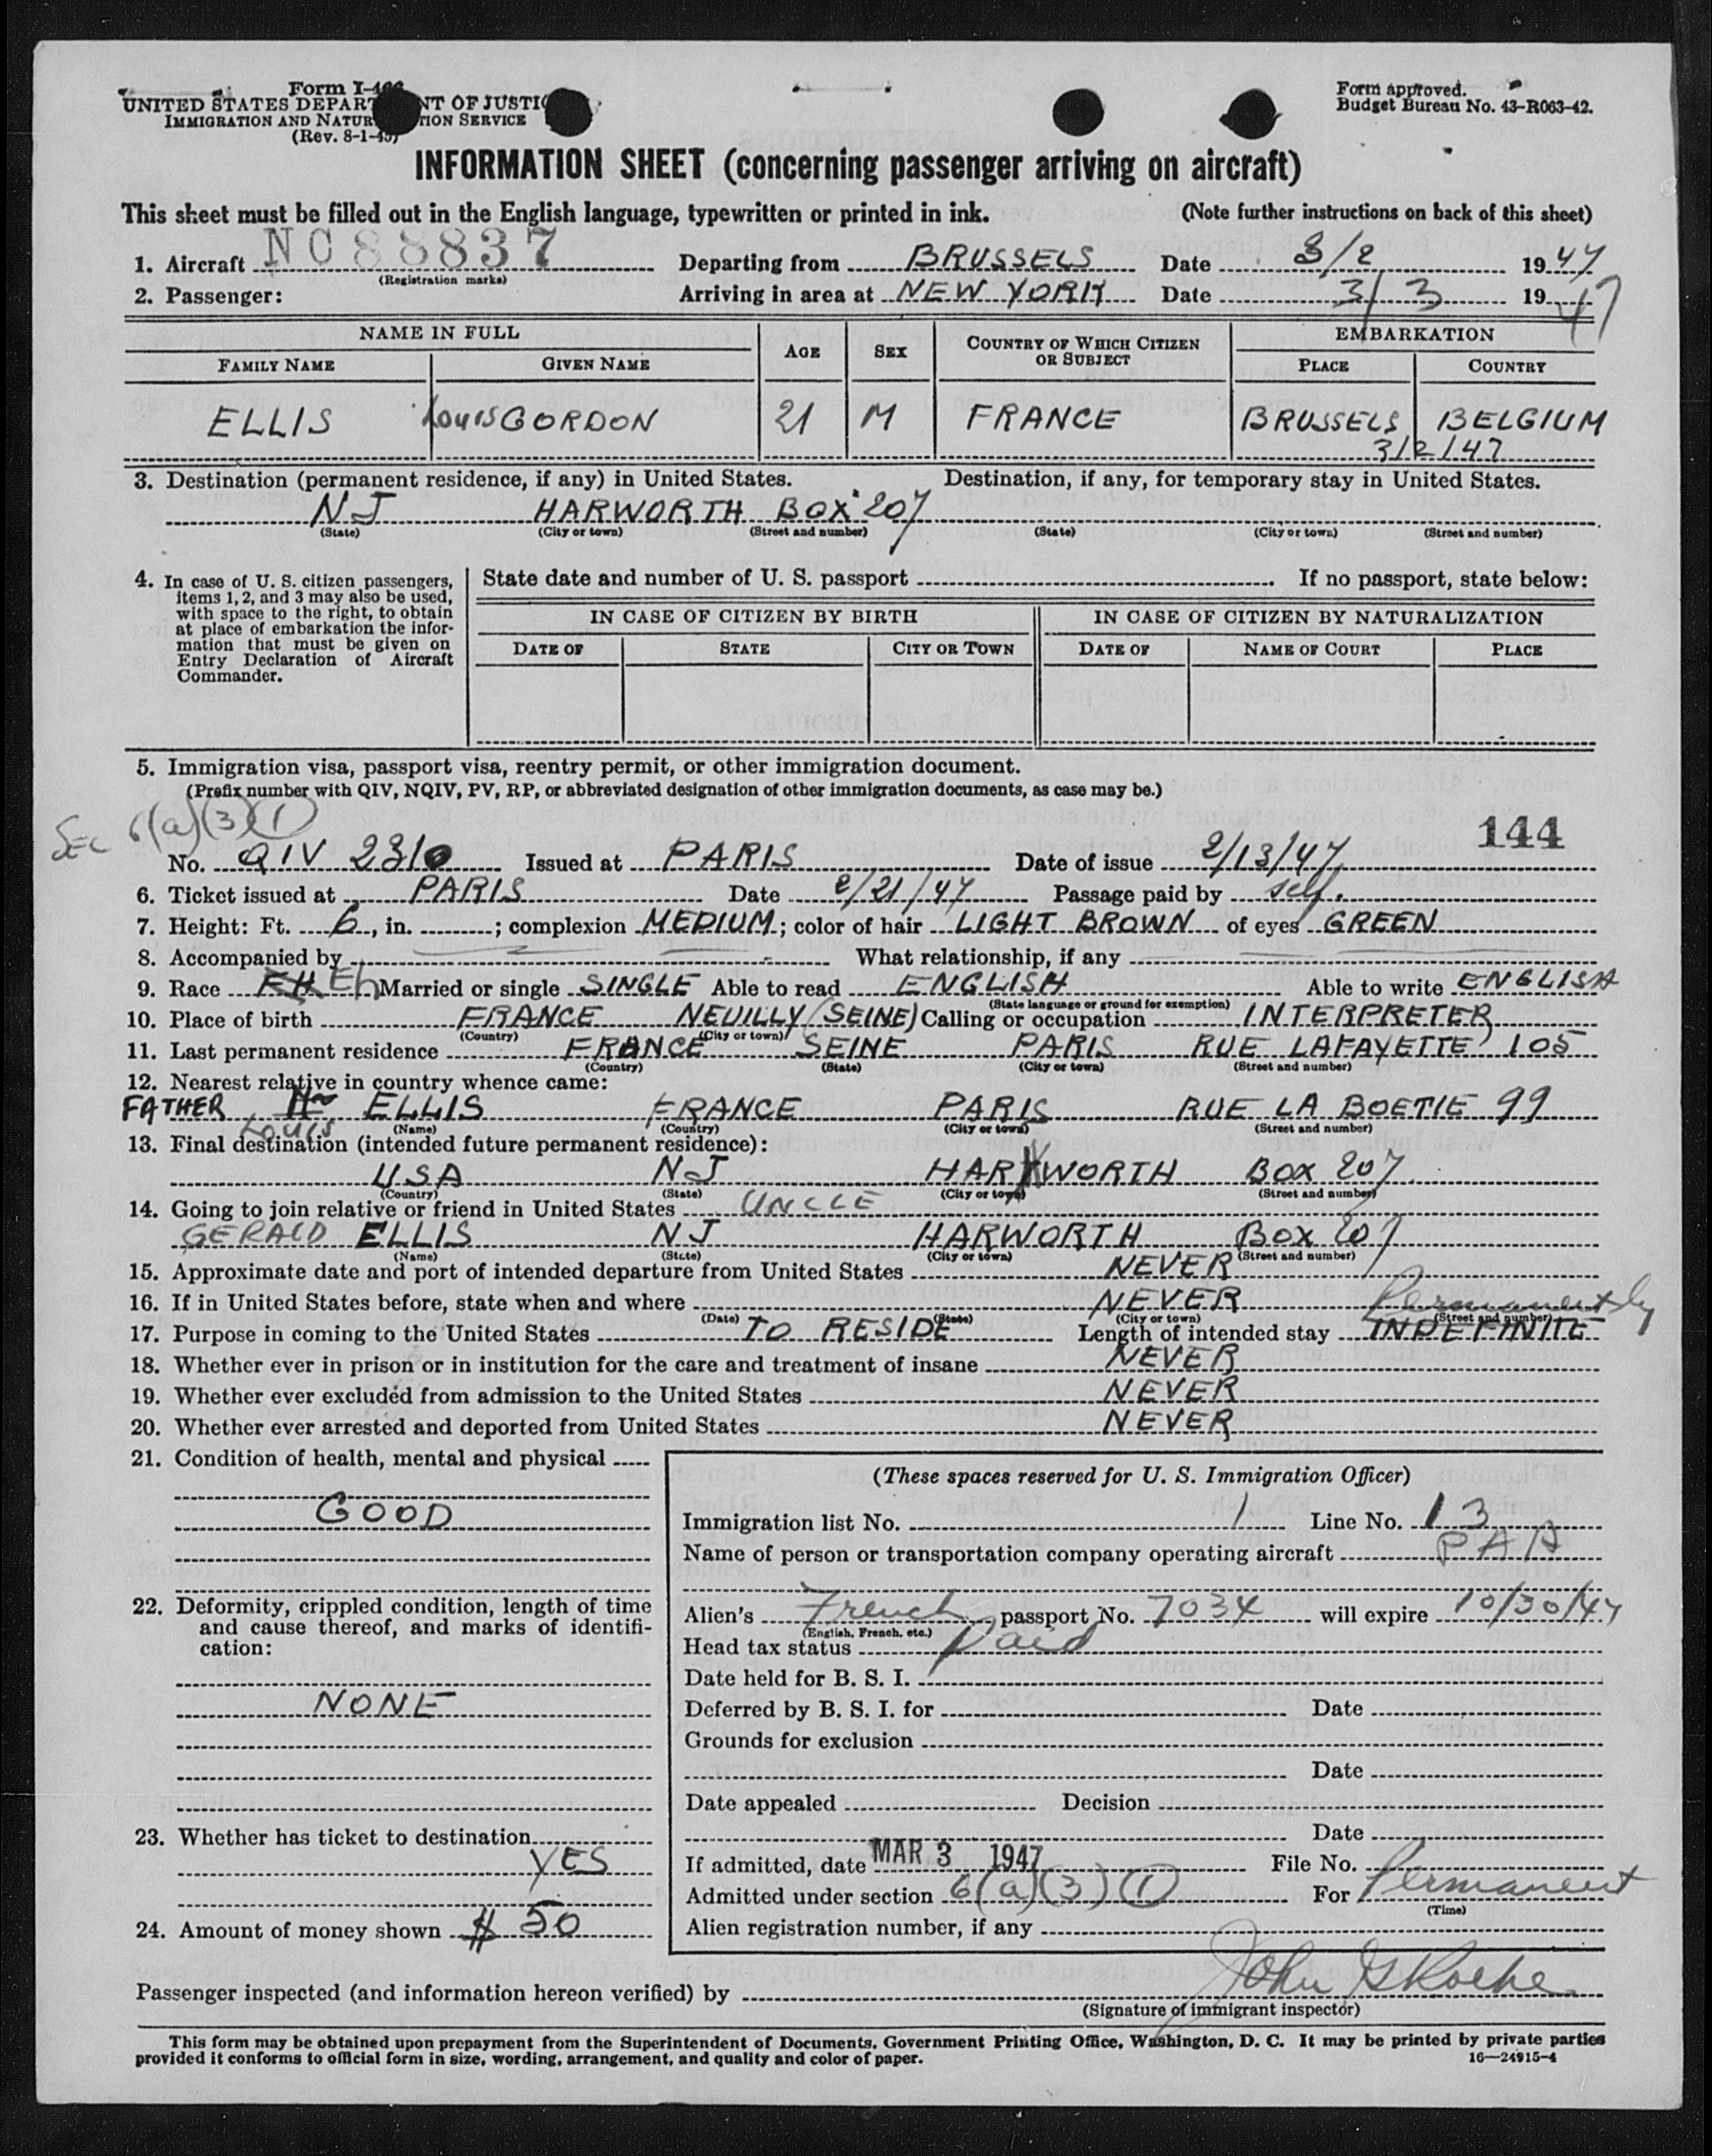 Form I-466
UNITED STATES DEPARTMENT OF JUSTICE
IMMIGRATION AND NATURALIZATION SERVICE
(Rev. 8-1-45)
Form approved.
Budget Bureau No. 43-R063-42.
INFORMATION SHEET (concerning passenger arriving on aircraft)
This sheet must be filled out in the English language, typewritten or printed in ink. (Note further instructions on back of this sheet)
1. Aircraft NC 88837 Departing from BRUSSELS Date 3/2 1947
(Registration marks)
2. Passenger: Arriving in area at NEW YORK Date 3/3 1947
NAME IN FULL AGE SEX COUNTRY OF WHICH CITIZEN OR SUBJECT EMBARKATION
FAMILY NAME GIVEN NAME PLACE COUNTRY
ELLIS Louis GORDON 21 M FRANCE BRUSSELS BELGIUM
3/2/47
3. Destination (permanent residence, if any) in United States. Destination, if any, for temporary stay in United States.
NJ HARWORTH BOX 207
(State) (City or town) (Street and number) (State) (City or town) (Street and number)
4. In case of U. S. citizen passengers, items 1, 2, and 3 may also be used, with space to the right, to obtain at place of embarkation the information that must be given on Entry Declaration of Aircraft Commander.
State date and number of U. S. passport . If no passport, state below:
IN CASE OF CITIZEN BY BIRTH IN CASE OF CITIZEN BY NATURALIZATION
DATE OF STATE CITY OR TOWN DATE OF NAME OF COURT PLACE
5. Immigration visa, passport visa, reentry permit, or other immigration document.
(Prefix number with QIV, NQIV, PV, RP, or abbreviated designation of other immigration documents, as case may be.)
Sec 6(a)(3)(1)
144
No. QIV 2310 Issued at PARIS Date of issue 2/13/47
6. Ticket issued at PARIS Date 2/21/47 Passage paid by self.
7. Height: Ft. 6, in. ; complexion MEDIUM; color of hair LIGHT BROWN of eyes GREEN
8. Accompanied by What relationship, if any
9. Race Eh Married or single SINGLE Able to read ENGLISH Able to write ENGLISH
(State language or ground for exemption)
10. Place of birth FRANCE NEUILLY (SEINE) Calling or occupation INTERPRETER
(Country) (City or town)
11. Last permanent residence FRANCE SEINE PARIS RUE LAFAYETTE 105
(Country) (State) (City or town) (Street and number)
12. Nearest relative in country whence came:
FATHER Louis ELLIS FRANCE PARIS RUE LA BOETIE 99
(Name) (Country) (City or town) (Street and number)
13. Final destination (intended future permanent residence):
USA NJ HARWORTH BOX 207
(Country) (State) (City or town) (Street and number)
14. Going to join relative or friend in United States UNCLE
GERALD ELLIS NJ HARWORTH BOX 207
(Name) (State) (City or town) (Street and number)
15. Approximate date and port of intended departure from United States NEVER
16. If in United States before, state when and where NEVER Permanently
(Date) (State) (City or town) (Street and number)
17. Purpose in coming to the United States TO RESIDE Length of intended stay INDEFINITE
18. Whether ever in prison or in institution for the care and treatment of insane NEVER
19. Whether ever excluded from admission to the United States NEVER
20. Whether ever arrested and deported from United States NEVER
21. Condition of health, mental and physical
GOOD
22. Deformity, crippled condition, length of time and cause thereof, and marks of identification:
NONE
23. Whether has ticket to destination
YES
24. Amount of money shown $ 50
(These spaces reserved for U. S. Immigration Officer)
Immigration list No. 1 Line No. 13
Name of person or transportation company operating aircraft PAA
Alien's French passport No. 7034 will expire 10/30/47
(English, French, etc.)
Head tax status Paid
Date held for B. S. I.
Deferred by B. S. I. for Date
Grounds for exclusion
Date
Date appealed Decision
Date
If admitted, date MAR 3 1947 File No.
Admitted under section 6(a)(3)(1) For Permanent
(Time)
Alien registration number, if any
Passenger inspected (and information hereon verified) by John
(Signature of immigrant inspector)
This form may be obtained upon prepayment from the Superintendent of Documents, Government Printing Office, Washington, D. C. It may be printed by private parties
provided it conforms to official form in size, wording, arrangement, and quality and color of paper. 16—24915-4